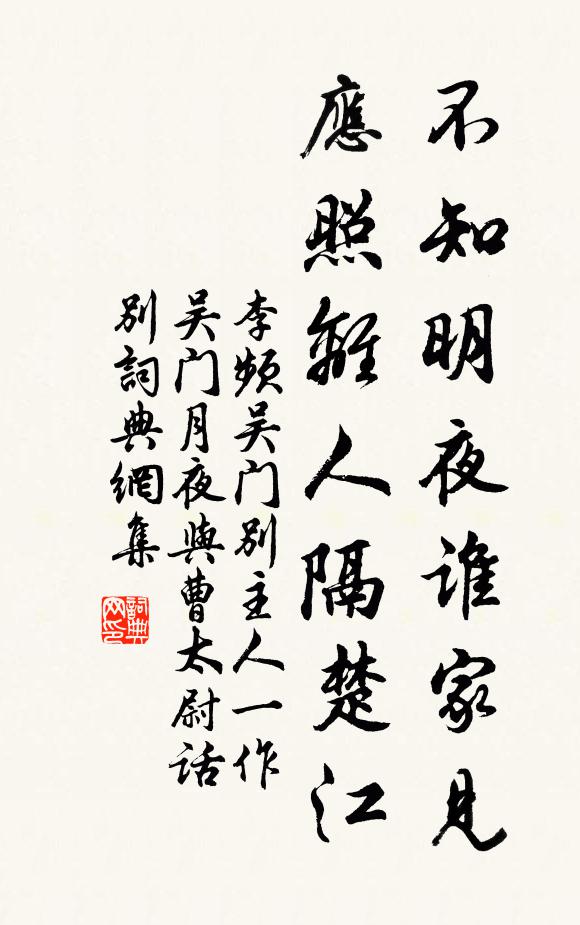 不知明夜谁家見
應照離人隔楚江
李频吴门别主人一作
吴门月夜與曹太尉話
别詞典網集
詞典网印